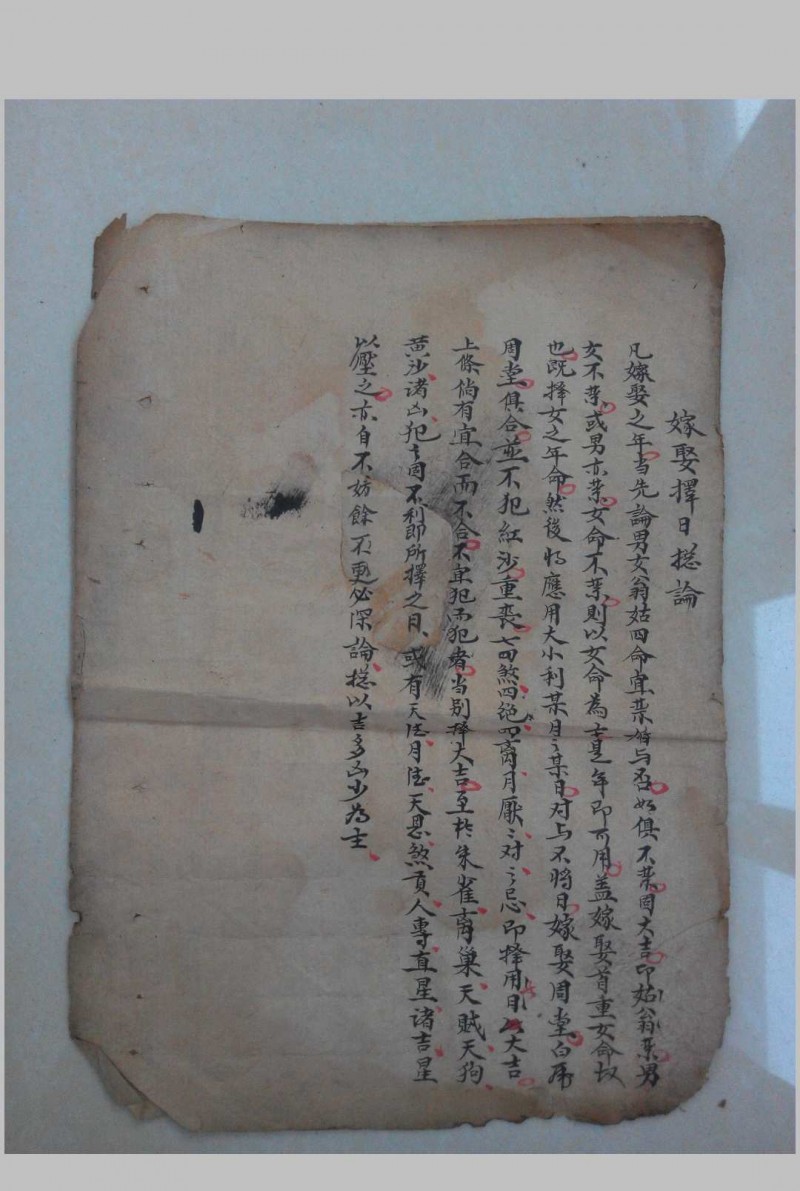 嫁娶擇日摠論
凡嫁娶之年当先論男女翁姑四命宜禁婚与否如俱不禁固大吉即姑翁禁男
女不禁或男亦禁女命不禁則以女命為主是年即可用盖嫁娶首重女命故
也既择女之年命然後將應用大小利某月之某日对与不將日嫁娶周堂白虎
周堂俱合並不犯紅沙重喪七四煞四絕四离月厭〻对之忌即择用日大吉
上條倘有宜合而不合不宜犯而犯者当别择大吉至於朱雀离巢天贼天狗
黄沙诸凶犯之固不利即所擇之日或有天德月德天恩煞貢人專直星诸吉星
以壓之亦自不妨餘不更必深論摠以吉多凶少為主